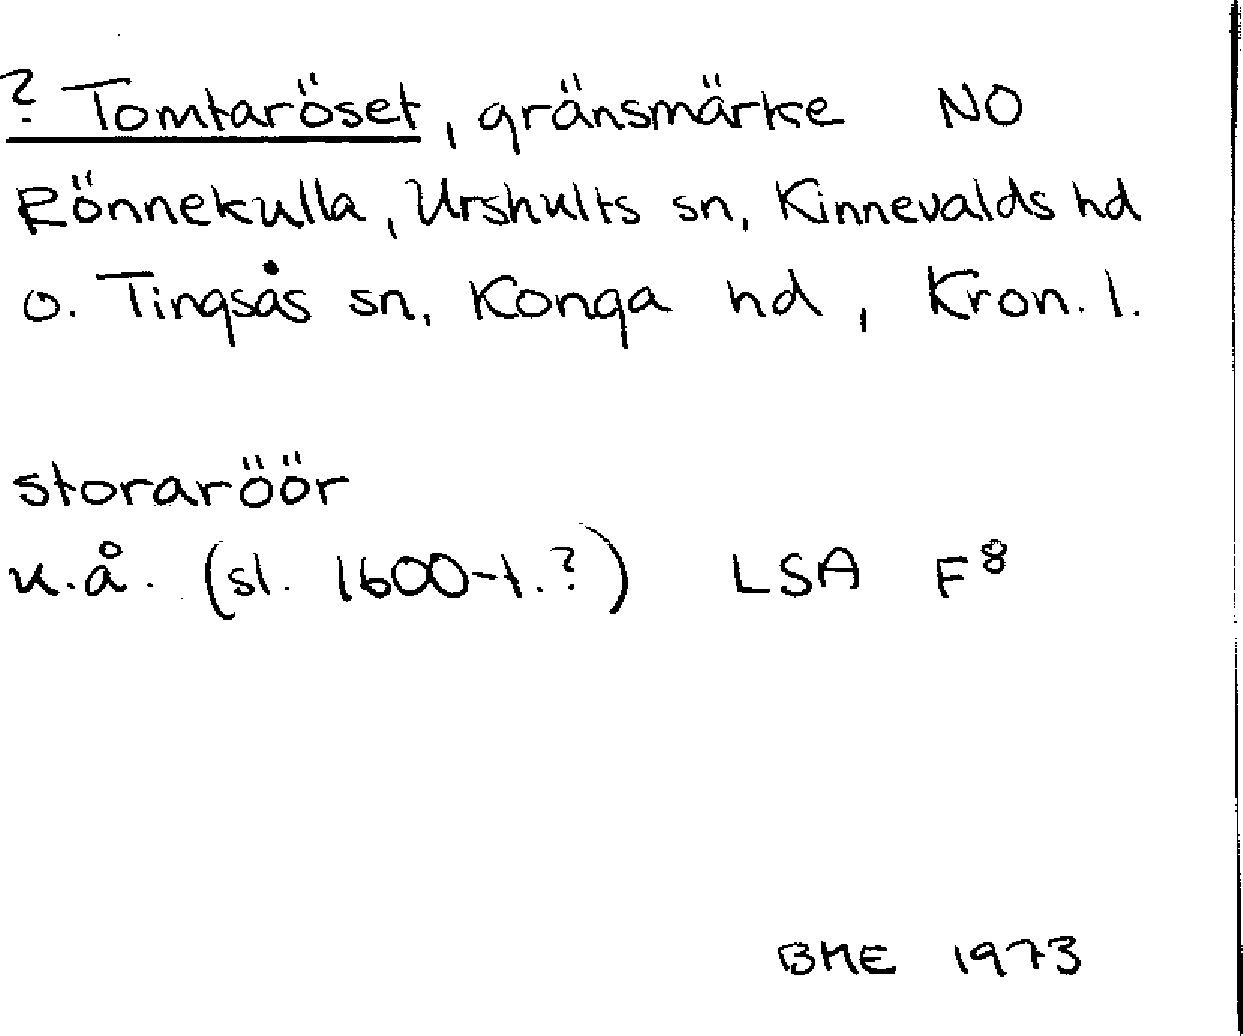 ? Tomtaröset, gränsmärke NO
Rönnekulla, Urshults sn, Kinnevalds hd
o. Tingsås sn, Konga hd, Kron. l.
storaröör
u.å. (sl. 1600-t.?) LSA F8
BME 1973